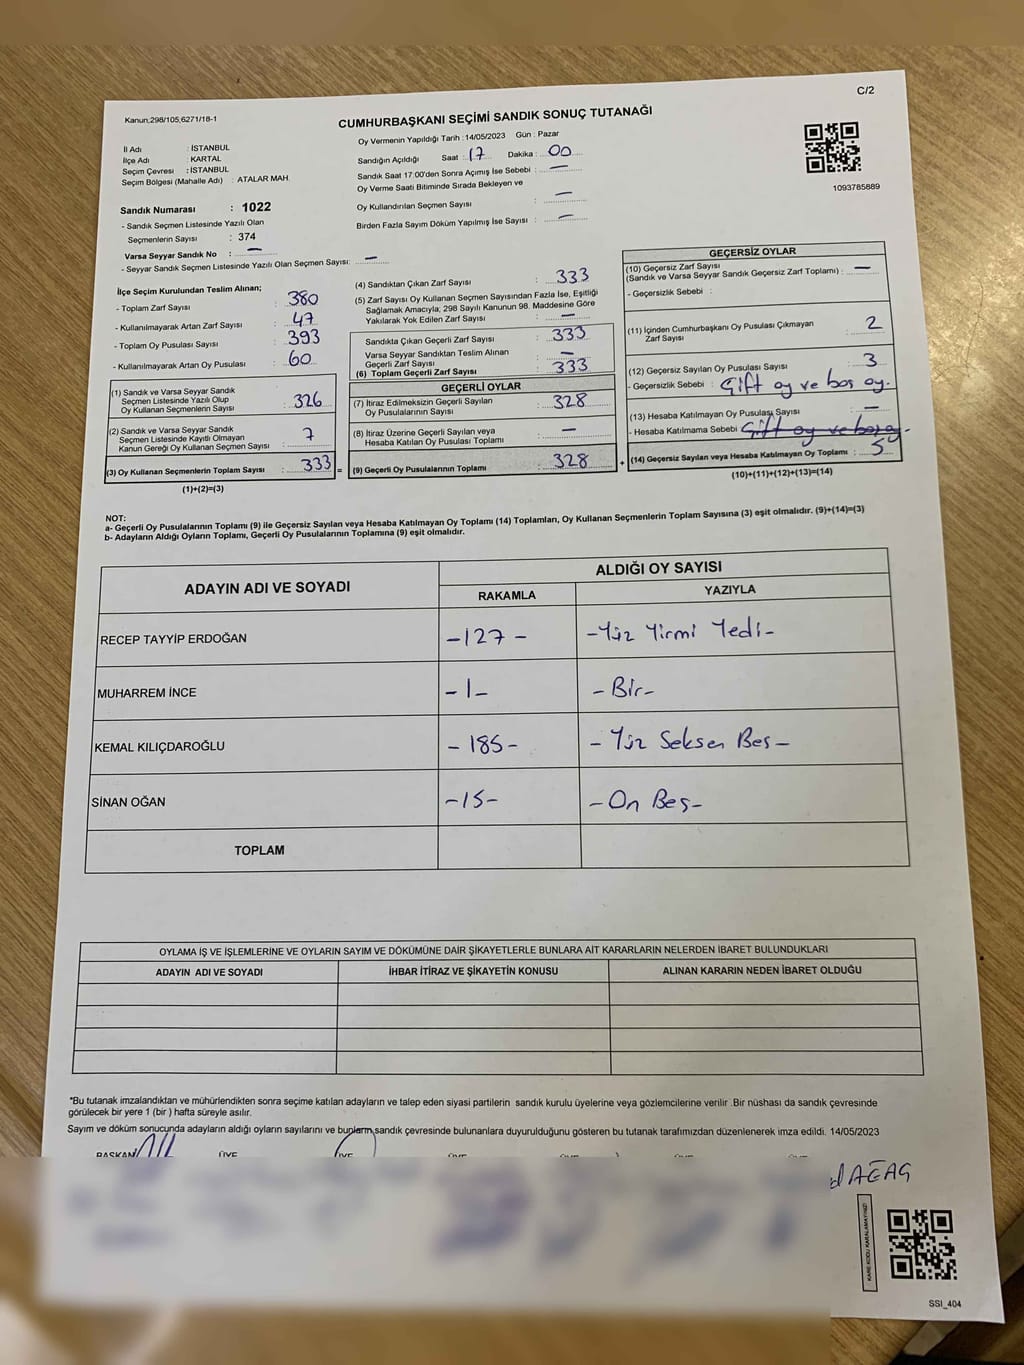 C/2
Kanun;298/105;6271/18-1
CUMHURBAŞKANI SEÇİMİ SANDIK SONUÇ TUTANAĞI
Oy Vermenin Yapıldığı Tarih : 14/05/2023 Gün : Pazar
İl Adı : İSTANBUL
İlçe Adı : KARTAL
Seçim Çevresi : İSTANBUL
Seçim Bölgesi (Mahalle Adı) : ATALAR MAH.
Sandığın Açıldığı Saat : 17 Dakika : 00
Sandık Saat 17:00'den Sonra Açımış İse Sebebi : —
Oy Verme Saati Bitiminde Sırada Bekleyen ve
Oy Kullandırılan Seçmen Sayısı : —
Birden Fazla Sayım Döküm Yapılmış İse Sayısı : —
1093785889
Sandık Numarası : 1022
- Sandık Seçmen Listesinde Yazılı Olan
Seçmenlerin Sayısı : 374
Varsa Seyyar Sandık No : —
- Seyyar Sandık Seçmen Listesinde Yazılı Olan Seçmen Sayısı: —
İlçe Seçim Kurulundan Teslim Alınan;
- Toplam Zarf Sayısı : 380
- Kullanılmayarak Artan Zarf Sayısı : 47
- Toplam Oy Pusulası Sayısı : 393
- Kullanılmayarak Artan Oy Pusulası : 60
(1) Sandık ve Varsa Seyyar Sandık
Seçmen Listesinde Yazılı Olup
Oy Kullanan Seçmenlerin Sayısı : 326
(2) Sandık ve Varsa Seyyar Sandık
Seçmen Listesinde Kayıtlı Olmayan
Kanun Gereği Oy Kullanan Seçmen Sayısı : 7
(3) Oy Kullanan Seçmenlerin Toplam Sayısı : 333 =
(1)+(2)=(3)
(4) Sandıktan Çıkan Zarf Sayısı : 333
(5) Zarf Sayısı Oy Kullanan Seçmen Sayısından Fazla İse, Eşitliği
Sağlamak Amacıyla; 298 Sayılı Kanunun 98. Maddesine Göre
Yakılarak Yok Edilen Zarf Sayısı : —
Sandıkta Çıkan Geçerli Zarf Sayısı : 333
Varsa Seyyar Sandıktan Teslim Alınan
Geçerli Zarf Sayısı : —
(6) Toplam Geçerli Zarf Sayısı : 333
GEÇERLİ OYLAR
(7) İtiraz Edilmeksizin Geçerli Sayılan
Oy Pusulalarının Sayısı : 328
(8) İtiraz Üzerine Geçerli Sayılan veya
Hesaba Katılan Oy Pusulası Toplamı : —
(9) Geçerli Oy Pusulalarının Toplamı : 328 +
GEÇERSİZ OYLAR
(10) Geçersiz Zarf Sayısı
(Sandık ve Varsa Seyyar Sandık Geçersiz Zarf Toplamı) : —
- Geçersizlik Sebebi :
(11) İçinden Cumhurbaşkanı Oy Pusulası Çıkmayan
Zarf Sayısı : 2
(12) Geçersiz Sayılan Oy Pusulası Sayısı : 3
- Geçersizlik Sebebi : Çift oy ve boş oy.
(13) Hesaba Katılmayan Oy Pusulası Sayısı : —
- Hesaba Katılmama Sebebi : Çift oy ve boş oy.
(14) Geçersiz Sayılan veya Hesaba Katılmayan Oy Toplamı : 5
(10)+(11)+(12)+(13)=(14)
NOT:
a- Geçerli Oy Pusulalarının Toplamı (9) ile Geçersiz Sayılan veya Hesaba Katılmayan Oy Toplamı (14) Toplamları, Oy Kullanan Seçmenlerin Toplam Sayısına (3) eşit olmalıdır. (9)+(14)=(3)
b- Adayların Aldığı Oyların Toplamı, Geçerli Oy Pusulalarının Toplamına (9) eşit olmalıdır.
ADAYIN ADI VE SOYADI
ALDIĞI OY SAYISI
RAKAMLA YAZIYLA
RECEP TAYYİP ERDOĞAN -127- -Yüz Yirmi Yedi-
MUHARREM İNCE -1- -Bir-
KEMAL KILIÇDAROĞLU -185- -Yüz Seksen Beş-
SİNAN OĞAN -15- -On Beş-
TOPLAM
OYLAMA İŞ VE İŞLEMLERİNE VE OYLARIN SAYIM VE DÖKÜMÜNE DAİR ŞİKAYETLERLE BUNLARA AİT KARARLARIN NELERDEN İBARET BULUNDUKLARI
ADAYIN ADI VE SOYADI İHBAR İTİRAZ VE ŞİKAYETİN KONUSU ALINAN KARARIN NEDEN İBARET OLDUĞU
*Bu tutanak imzalandıktan ve mühürlendikten sonra seçime katılan adayların ve talep eden siyasi partilerin sandık kurulu üyelerine veya gözlemcilerine verilir .Bir nüshası da sandık çevresinde
görülecek bir yere 1 (bir ) hafta süreyle asılır.
Sayım ve döküm sonucunda adayların aldığı oyların sayılarını ve bunların sandık çevresinde bulunanlara duyurulduğunu gösteren bu tutanak tarafımızdan düzenlenerek imza edildi. 14/05/2023
BAŞKAN ÜYE ÜYE
KARE KODU KARALAMAYINIZ!
SSI_404